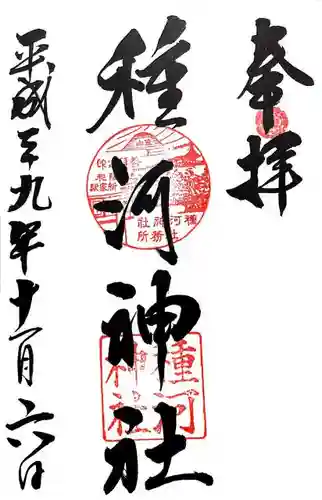 奉拝
種河神社
平成二十九年十一月六日
種河神社
種河神社
社務所